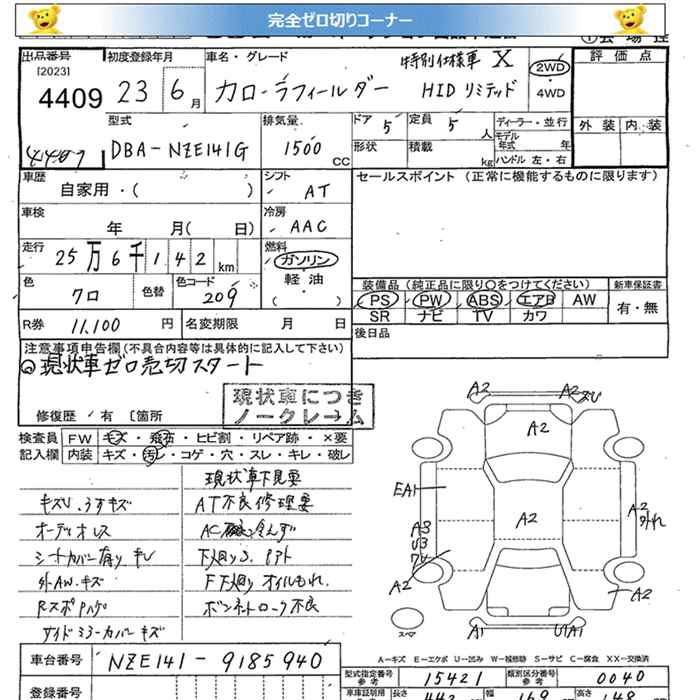 完全ゼロ切りコーナー
出品番号
[2023]
4409
初度登録年月
23年 6月
車名・グレード
カローラフィールダー
特別仕様車 X
HIDリミテッド
2WD
4WD
評価点
外装 内装
型式
DBA-NZE141G
排気量
1500 CC
ドア 5
定員 5 人
形状
積載 kg
ディーラー・並行
モデル年式 年
ハンドル 左・右
車歴
自家用・( )
シフト
AT
セールスポイント (正常に機能するものに限ります)
車検
年 月( 日)
冷房
AAC
走行
25万6千142 km
燃料
ガソリン
軽油
( )
色
クロ
色替
色コード
209
装備品(純正品に限り○をつけてください)
新車保証書
PS PW ABS エアB AW
SR ナビ TV カワ
有・無
R券 11,100 円
名変期限 月 日
後日品
注意事項申告欄(不具合内容等は具体的に記入して下さい)
◎現状車ゼロ売切スタート
修復歴 / 有 〔箇所
現状車につき
ノークレーム
検査員
記入欄
FW キズ・飛石・ヒビ割・リペア跡・×要
内装 キズ・汚レ・コゲ・穴・スレ・キレ・破レ
現状車下見要
キズU、うすキズ
AT不良修理要
オーディオレス
シートカバー有り キレ
外AW.キズ
F下廻りオイルもれ.
ボンネットロック不良
サイドミラーカバーキズ
A2
A2
A2
EA1
A2
A2
外れ
A3
U3
A2
A2
A1
U1A1
スペア
A-キズ E-エクボ U-凹み W-補修跡 S-サビ C-腐食 XX-交換済
車台番号
NZE141-9185940
型式指定番号
15421
類別区分番号
0040
登録番号
長さ
幅 169
高さ 148